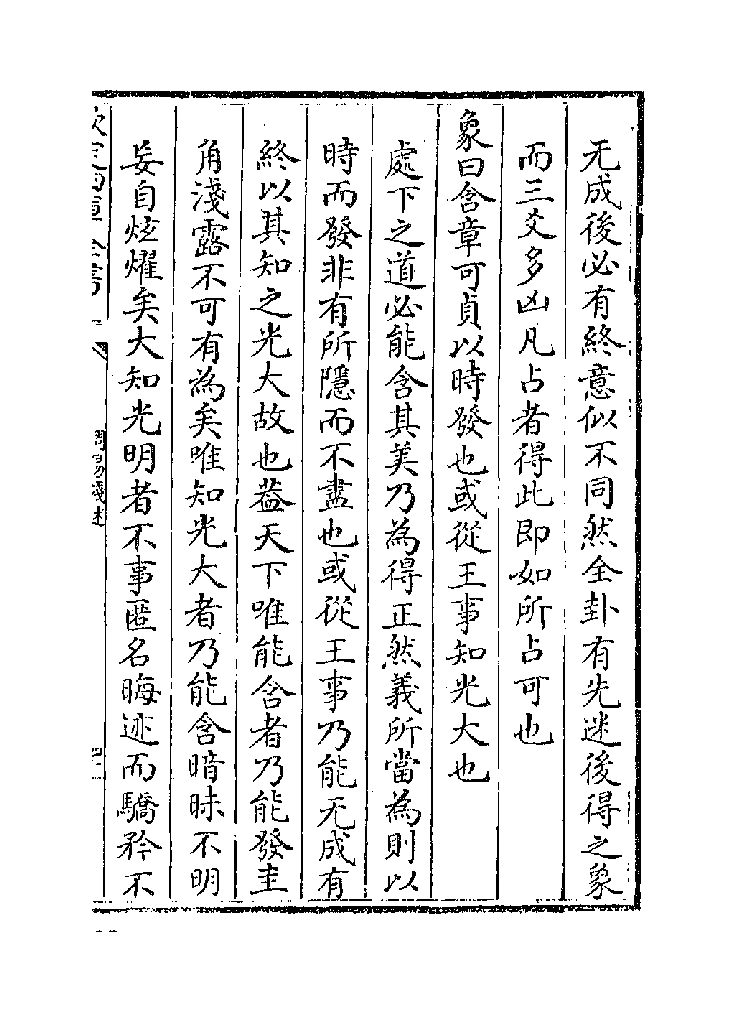 无成後必有終意似不同然全卦有先迷後得之象
而三爻多凶凡占者得此即如所占可也
象曰含章可貞以時發也或從王事知光大也
處下之道必能含其美乃為得正然義所當為則以
時而發非有所隱而不盡也或從王事乃能无成有
終以其知之光大故也葢天下唯能含者乃能發圭
角淺露不可有為矣唯知光大者乃能含暗昧不明
妄自炫燿矣大知光明者不事匿名晦迹而驕矜不
欽定四庫全書
周易淺述